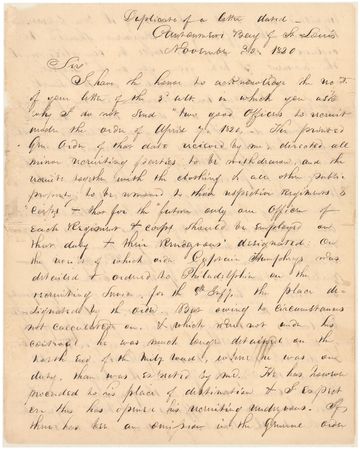 Duplicate of a letter dated -
Cantonment Bay of St. Louis
November 3d, 1820
Sir
I have the honor to acknowledge the rec't
of your letter of the 3d ult. in which you ask
"why I do not send two good officers to recruit
under the order of April 7th 1820, The printed
Gen. Order of that date received by me, directed all
minor recruiting parties to be withdrawn, and the
recruits together with the clothing & all other public
property to be removed to their respective Regiments &
Corps & that for the future only one Officer of
each Regiment & corps should be employed on
that duty & their Rendezvous designated: on
the receipt of which order Captain Humphreys was
detailed & ordered to Philadelphia on the
recruiting service, for the 8th Inf'y. the place de-
signated by the order. But owing to circumstances
not calculated on, & which were not under his
control, he was much longer detained on the
North end of the Mily. road, where he was on
duty, than was expected by me. He has however
proceeded to his place of destination & I expect
ere this has opened his recruiting rendezvous. If
there has been an omission in the General order